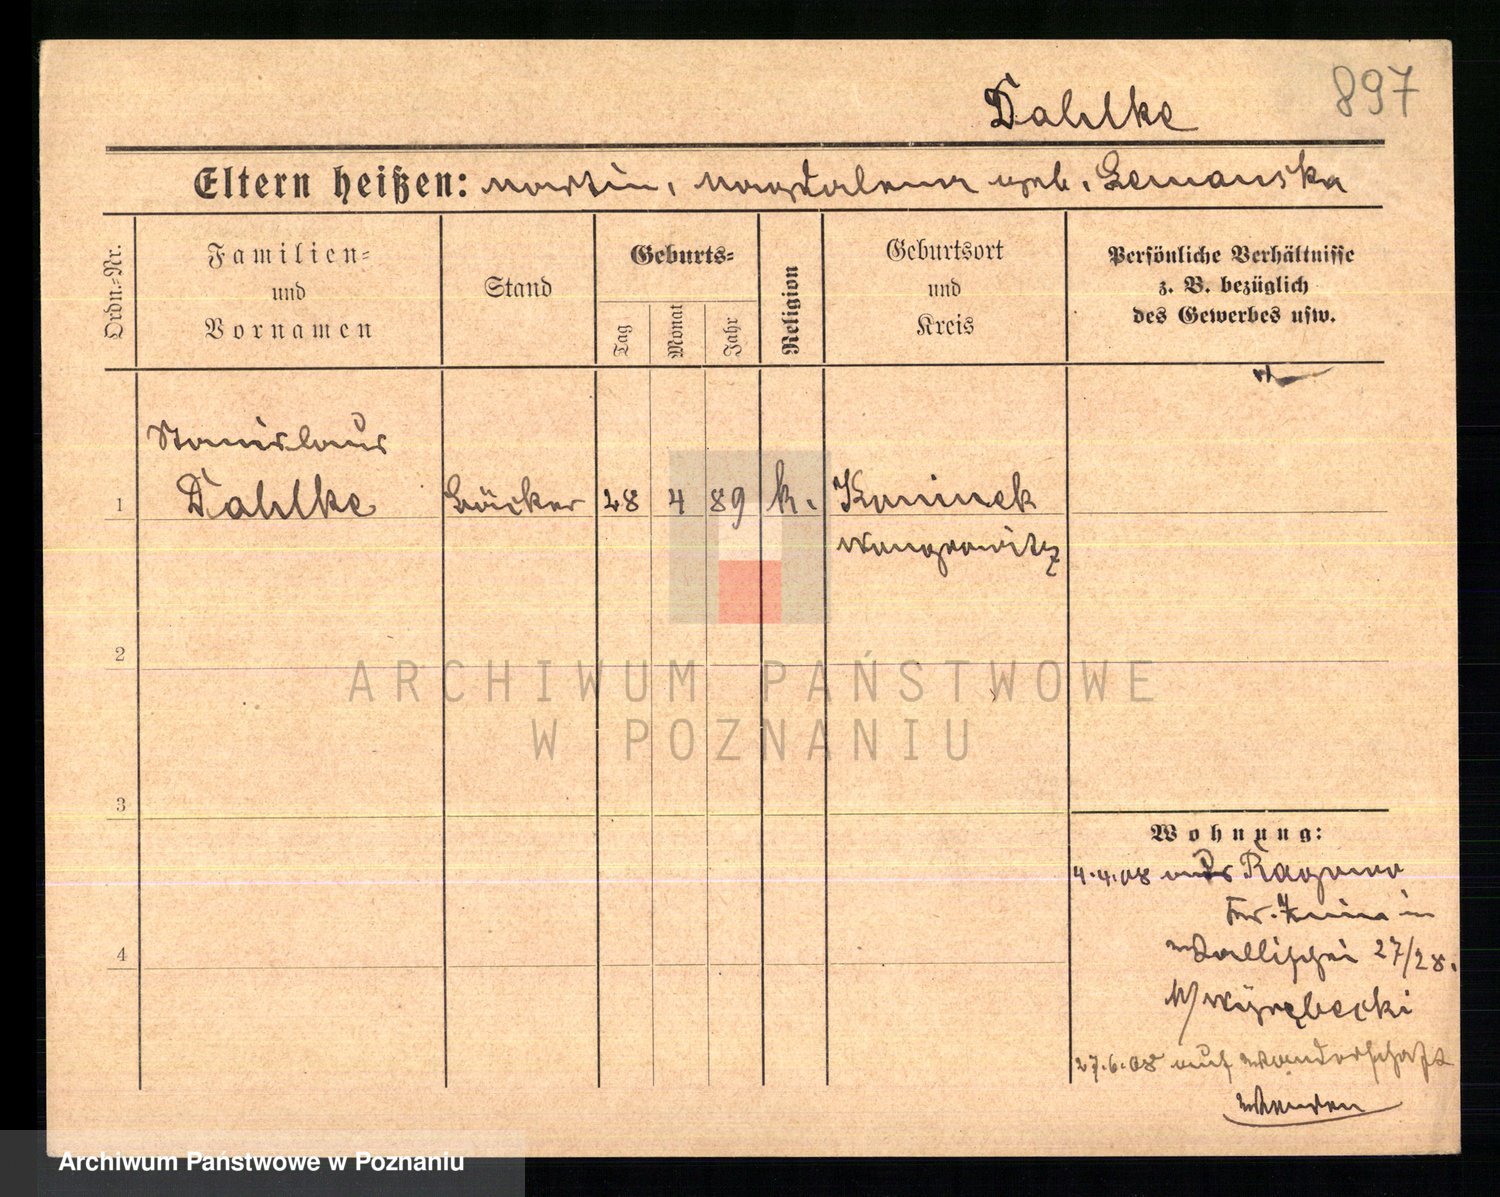 897
Dahlke
Eltern heißen: Martin, Magdalena geb. Lemanska
Ordn.-Nr.
Familien-
und
Vornamen
Stand
Geburts-
Tag
Monat
Jahr
Religion
Geburtsort
und
Kreis
Persönliche Verhältnisse
z. B. bezüglich
des Gewerbes usw.
Stanislaus
1 Dahlke Bäcker 28 4 89 k. Kaminek
Wongrowitz
2
ARCHIWUM PAŃSTWOWE
W POZNANIU
3
Wohnung:
4.4.08 aus Ragowo
Kr. Znin in
Wallischei 27/28.
b/
27.6.08 auf Wanderschaft
Wenden
4
Archiwum Państwowe w Poznaniu